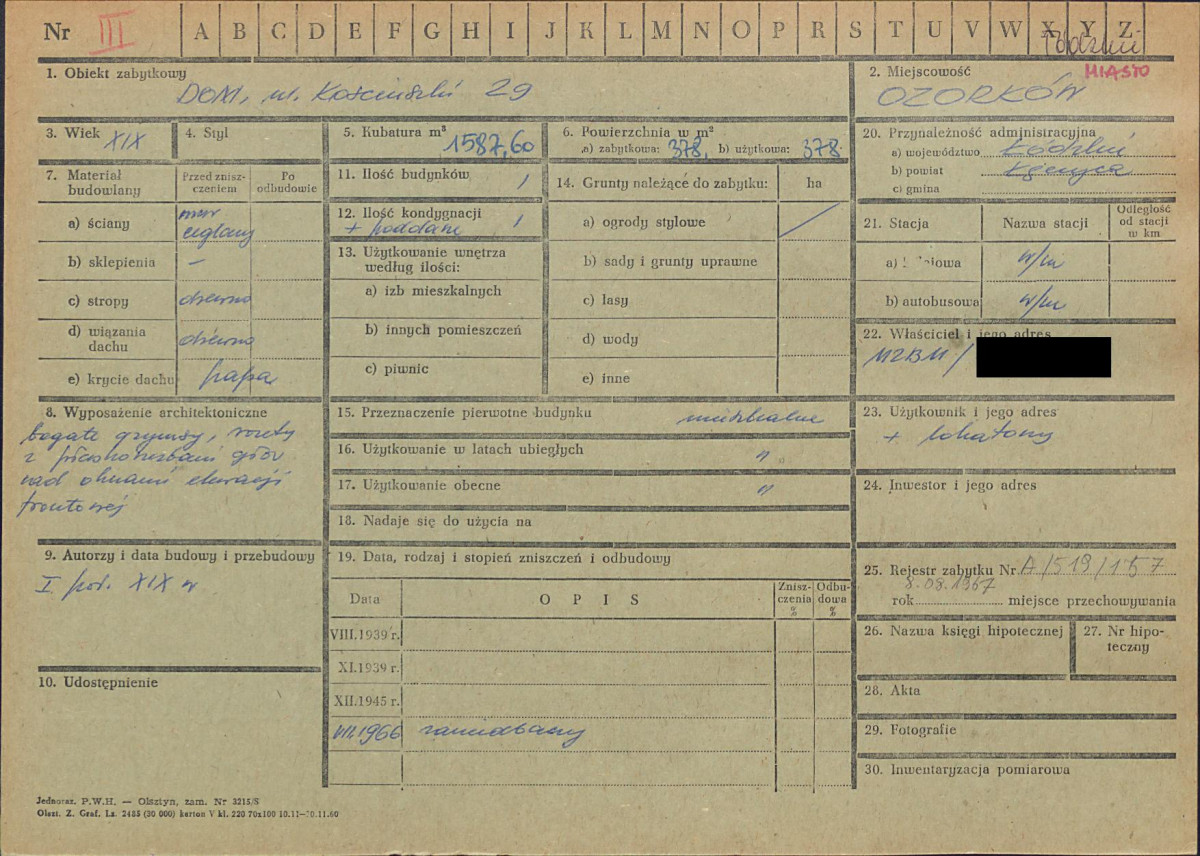 Nr III A B C D E F G H I J K L M N O P R S T U V W X Y Z
MIASTO
1. Obiekt zabytkowy
DOM, ul. Kościuszki 29
2. Miejscowość
OZORKÓW
3. Wiek XIX
4. Styl
5. Kubatura m³
1587,60
6. Powierzchnia w m²
a) zabytkowa: 378, b) użytkowa: 378
7. Materiał budowlany
Przed zniszczeniem
Po odbudowie
a) ściany
mur
ceglany
b) sklepienia –
c) stropy drewno
d) wiązania dachu drewno
e) krycie dachu papa
8. Wyposażenie architektoniczne
bogate gzymsy, rozety
z płaskorzeźbami głów
nad oknami elewacji
frontowej
9. Autorzy i data budowy i przebudowy
I poł. XIX w
10. Udostępnienie
11. Ilość budynków 1
12. Ilość kondygnacji 1
+ poddasze
13. Użytkowanie wnętrza
według ilości:
a) izb mieszkalnych
b) innych pomieszczeń
c) piwnic
14. Grunty należące do zabytku: ha
a) ogrody stylowe
b) sady i grunty uprawne
c) lasy
d) wody
e) inne
15. Przeznaczenie pierwotne budynku mieszkalne
16. Użytkowanie w latach ubiegłych "
17. Użytkowanie obecne "
18. Nadaje się do użycia na
19. Data, rodzaj i stopień zniszczeń i odbudowy
Data
OPIS
Zniszczenia %
Odbudowa %
VIII.1939 r.
XI.1939 r.
XII.1945 r.
VII.1966 zaniedbany
20. Przynależność administracyjna
a) województwo Łódzkie
b) powiat Łęczyca
c) gmina
21. Stacja
Nazwa stacji
Odległość
od stacji
w km
a) kolejowa w/m
b) autobusowa w/m
22. Właściciel i jego adres
MZBM /
23. Użytkownik i jego adres
+ lokatorzy
24. Inwestor i jego adres
25. Rejestr zabytku Nr A/519/157
8.09.1967
rok miejsce przechowywania
26. Nazwa księgi hipotecznej
27. Nr hipoteczny
28. Akta
29. Fotografie
30. Inwentaryzacja pomiarowa
Jednoraz. P.W.H. — Olsztyn, zam. Nr 3215/S
Olszt. Z. Graf. Lz. 2485 (30 000) karton V kl. 220 70x100 10.11—30.11.60